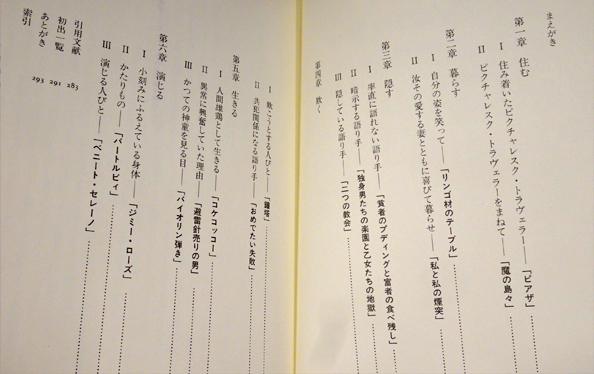 まえがき
第一章 住む
Ⅰ 住み着いたピクチャレスク・トラヴェラー——「ピアザ」
Ⅱ ピクチャレスク・トラヴェラーをまねて——「魔の島々」
第二章 暮らす
Ⅰ 自分の姿を笑って——「リンゴ材のテーブル」
Ⅱ 汝その愛する妻とともに喜びて暮らせ——「私と私の煙突」
第三章 隠す
Ⅰ 率直に語れない語り手——「貧者のプディングと富者の食べ残し」
Ⅱ 暗示する語り手——「独身男たちの楽園と乙女たちの地獄」
Ⅲ 隠している語り手——「二つの教会」
第四章 欺く
Ⅰ 欺こうとする人びと——「鐘塔」
Ⅱ 共犯関係になる語り手——「おめでたい失敗」
第五章 生きる
Ⅰ 人間雄鶏として生きる——「コケコッコー」
Ⅱ 異常に興奮していた理由——「避雷針売りの男」
Ⅲ かつての神童を見る目——「バイオリン弾き」
第六章 演じる
Ⅰ 小刻みにふるえている身体——「ジミー・ローズ」
Ⅱ かたりもの——「バートルビィ」
Ⅲ 演じる人びと——「ベニート・セレーノ」
引用文献 283
初出一覧 291
あとがき 293
索引